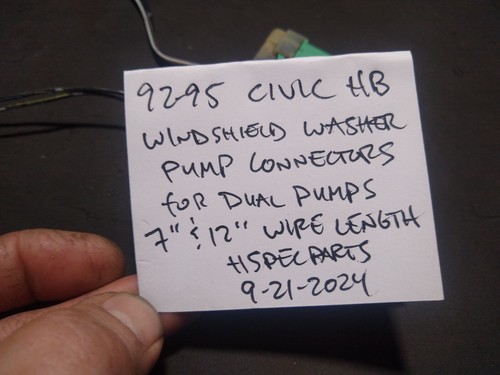 92-95 CIVIC HB
WINDSHIELD WASHER
PUMP CONNECTORS
FOR DUAL PUMPS
7" & 12" WIRE LENGTH
HSPECPARTS
9-21-2024